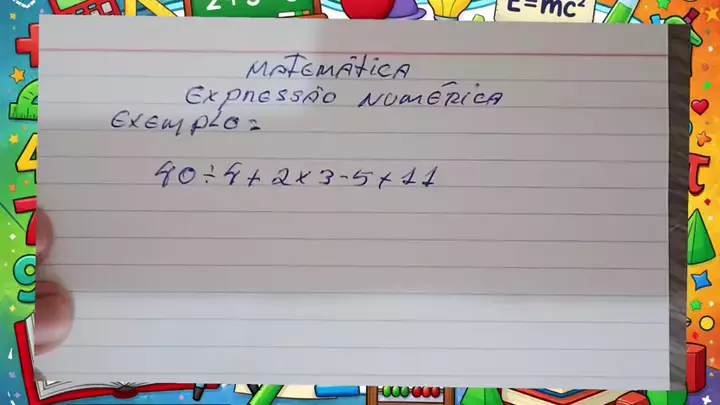 E=mc²
MATEMÁTICA
EXPRESSÃO NUMÉRICA
EXEMPLO:
40÷4+2×3-5+11